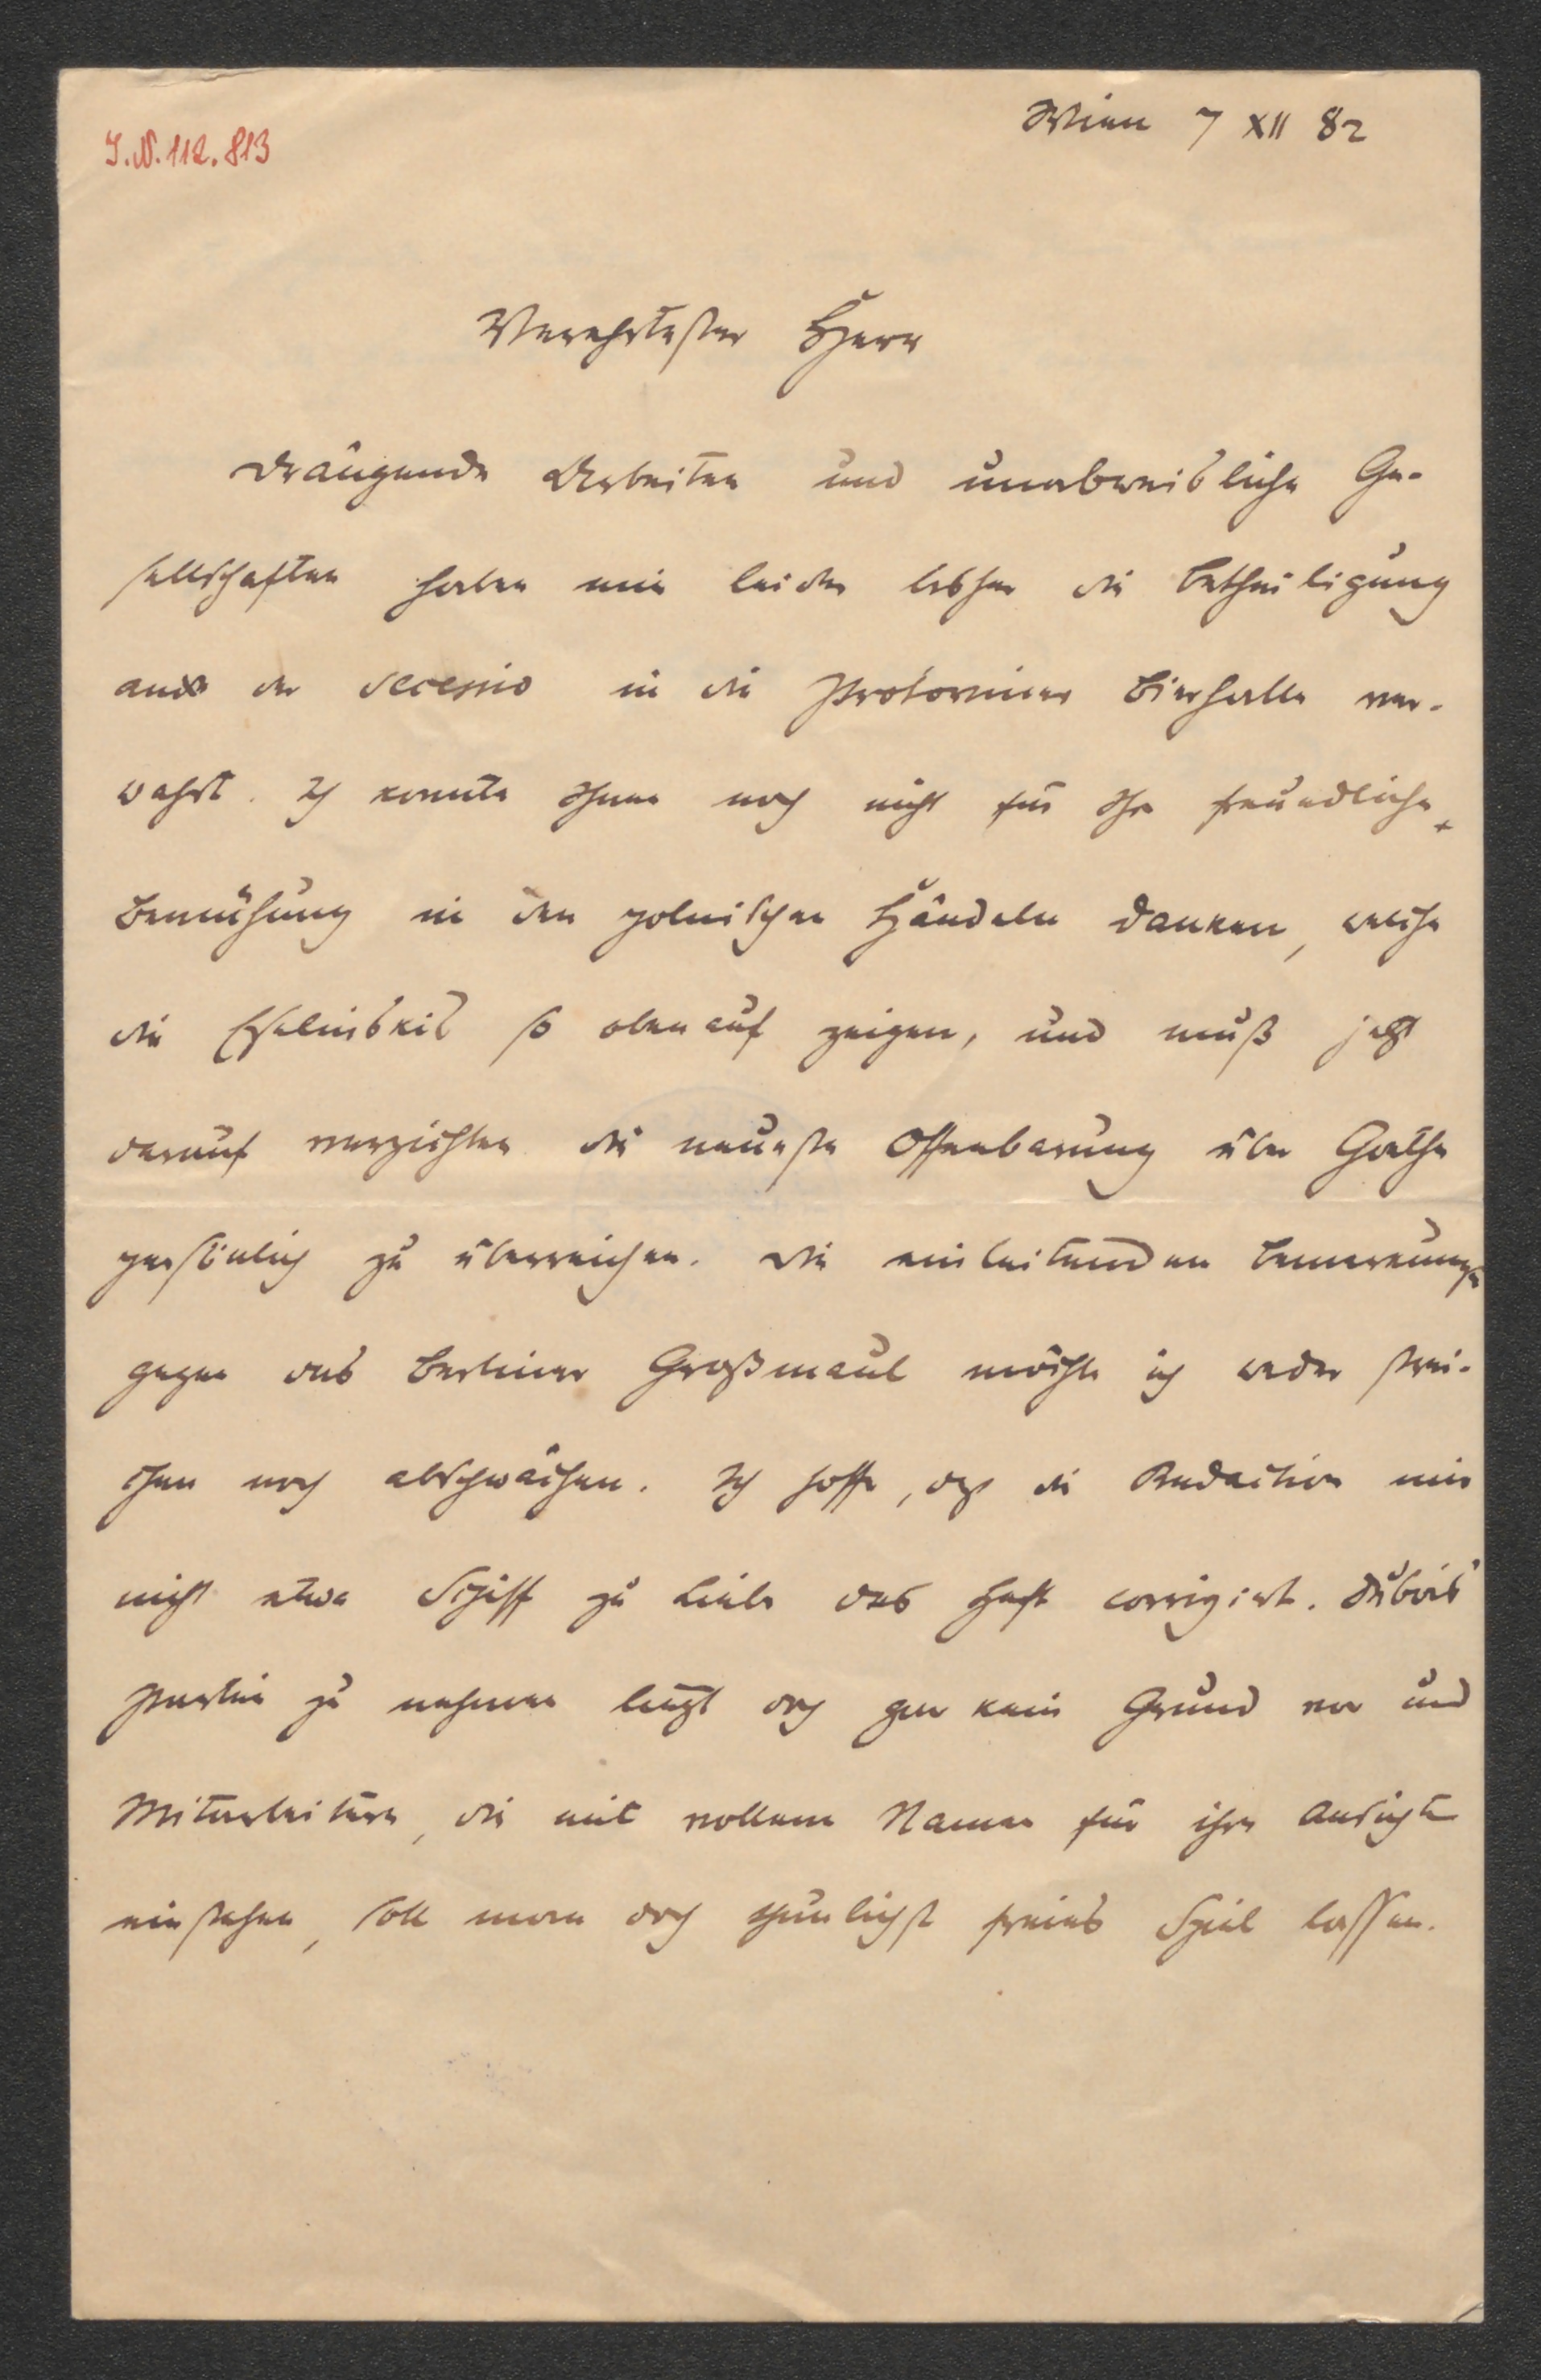 J.N. 112.813
Wien 7 XII 82
Verehrtester Herr
Drängende Arbeiten und unabweisliche Ge-
sellschaften haben mir leider bisher die Betheiligung
an der secessio in die Bierhalle ver-
wehrt. Ich konnte Ihnen noch nicht für Ihre freundliche
Bemühung in den polnischen Händeln danken, welche
die so obenauf zeigen, und muß jetzt
darauf verzichten die neueste Offenbarung über Goethe
persönlich zu überreichen. Die einleitenden Bemerkungen
gegen das Berliner Großmaul möchte ich weder strei-
chen noch abschwächen. Ich hoffe, daß die Redaction mir
nicht etwa Schiff zu Liebe das Heft corrigirt. Dubois'
Partei zu nehmen liegt doch gar kein Grund vor und
Mitarbeitern, die mit vollem Namen für ihre Ansichten
einstehen, soll man doch thunlichst freies Spiel lassen.